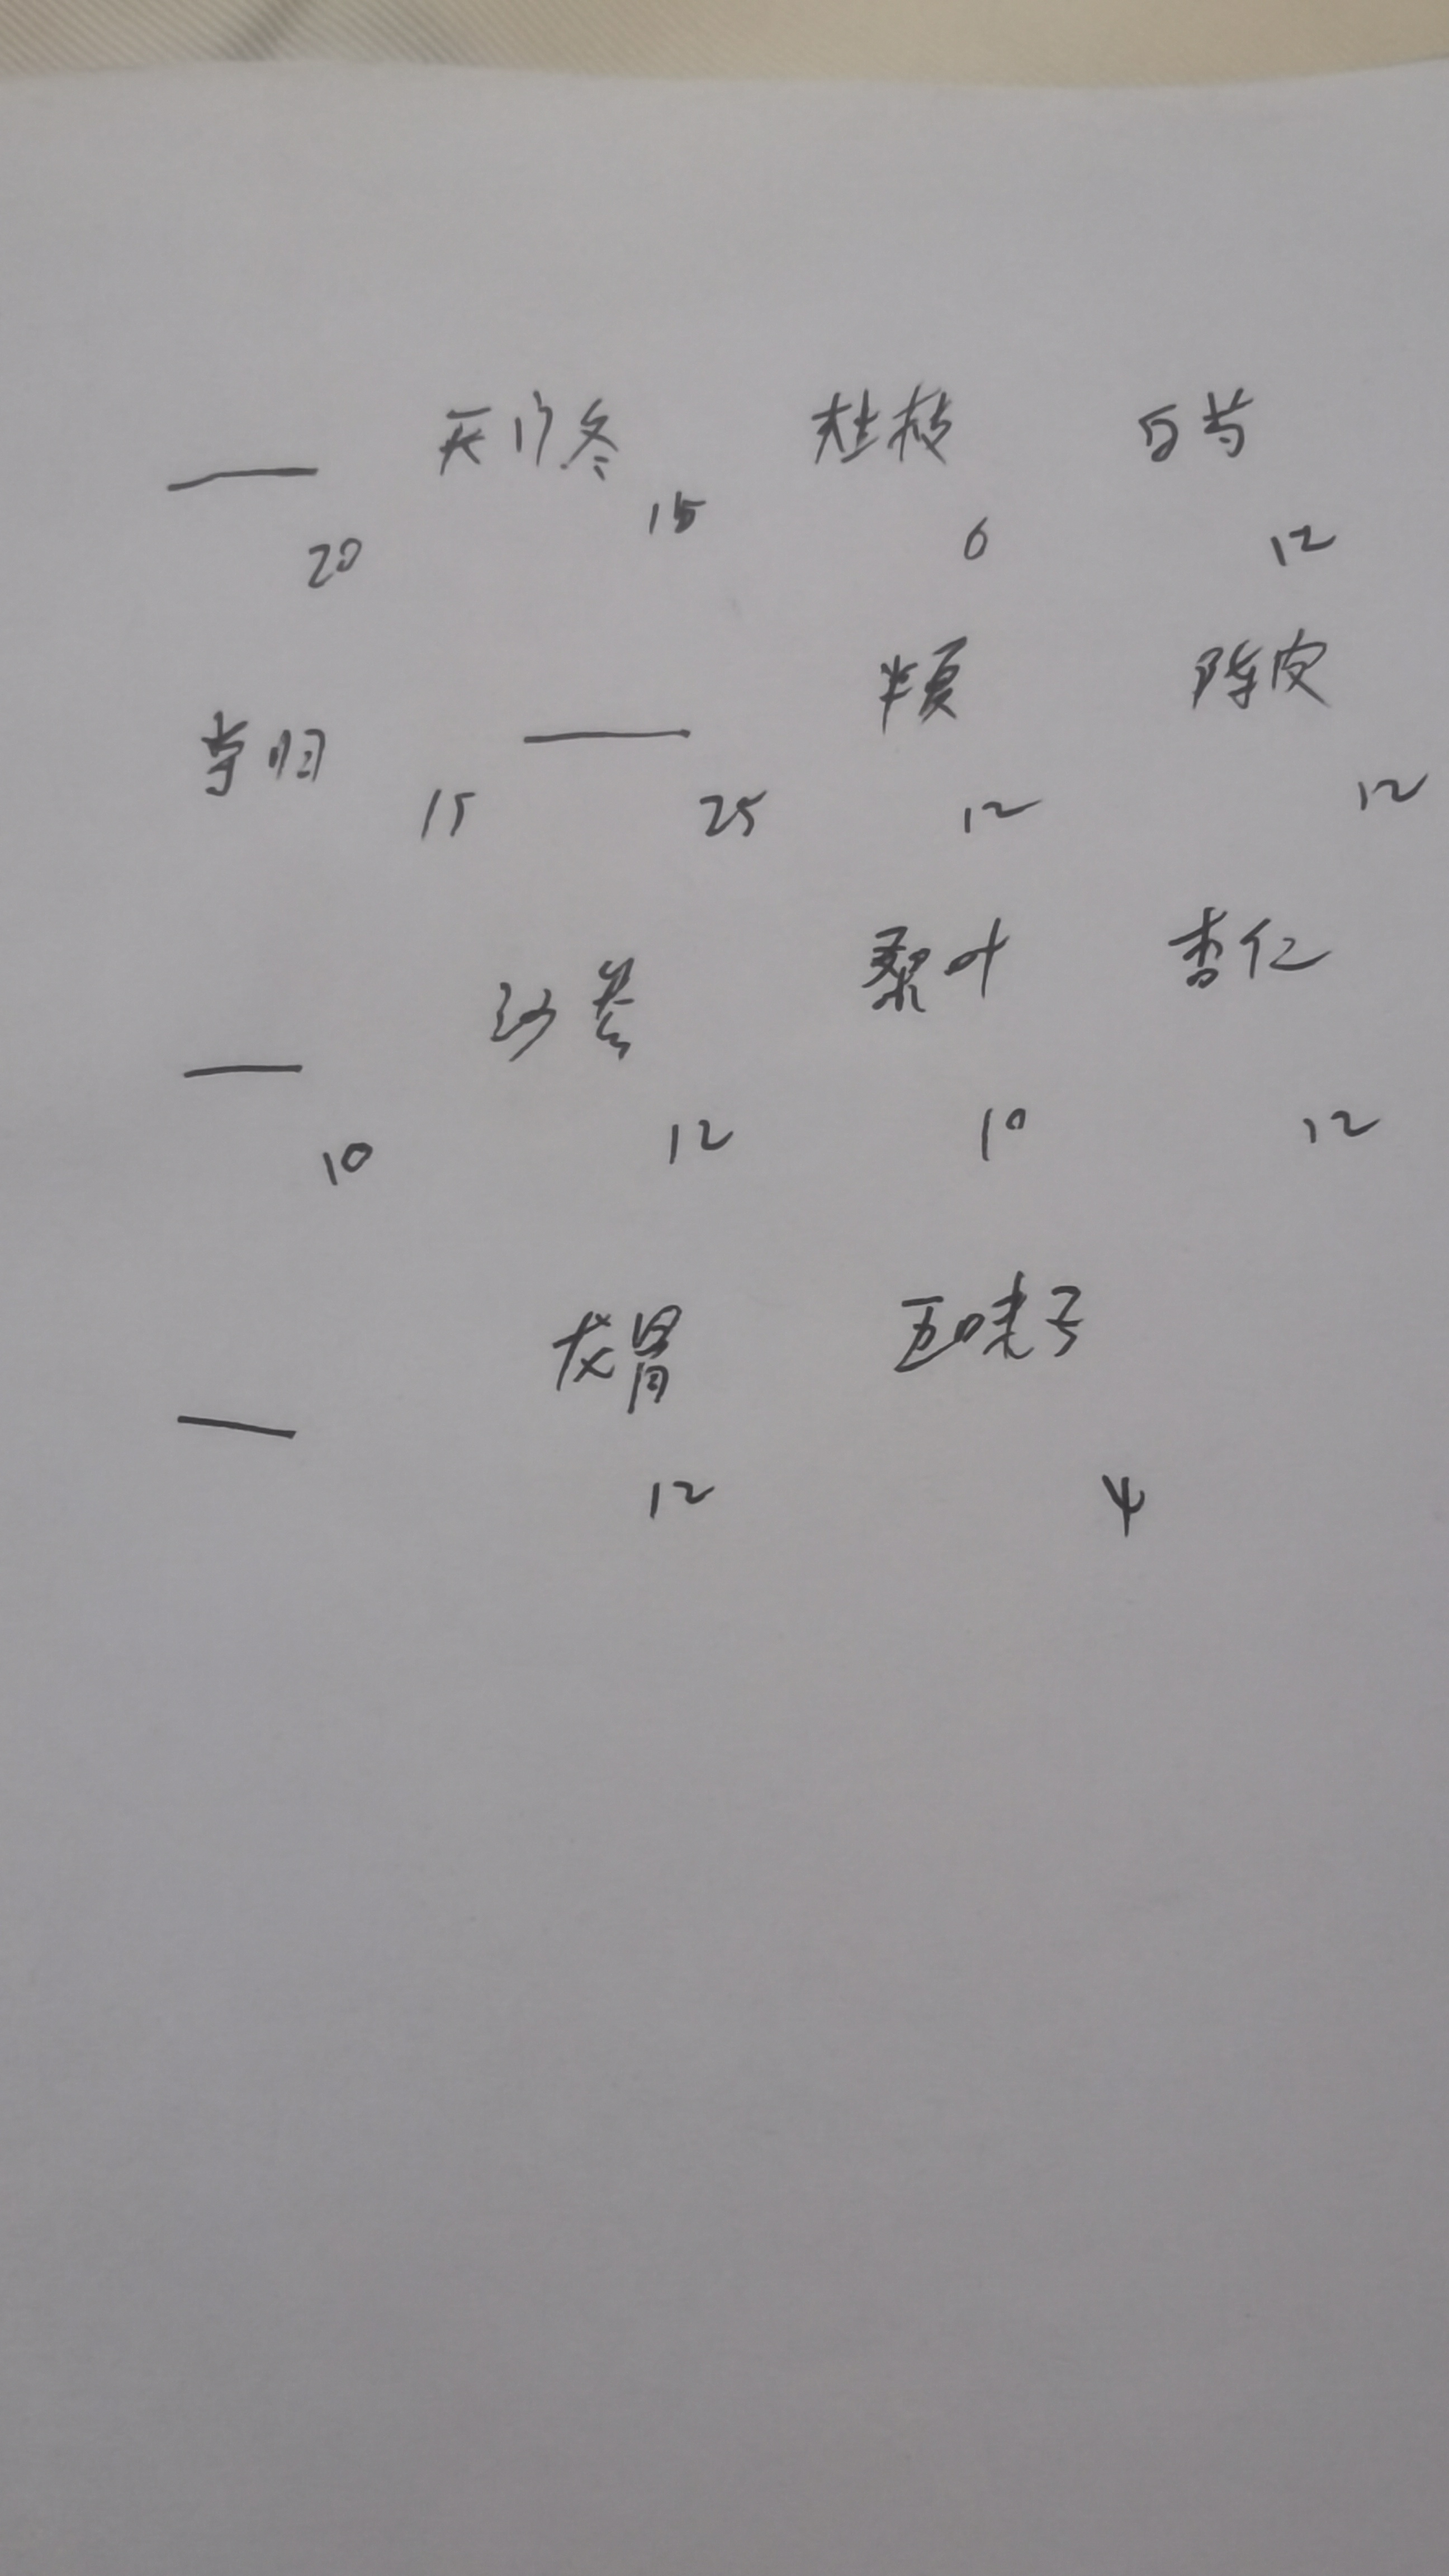 天门冬 桂枝 白芍
20 15 6 12
当归 半夏 陈皮
15 25 12 12
沙参 桑叶 杏仁
10 12 10 12
龙骨 五味子
12 4